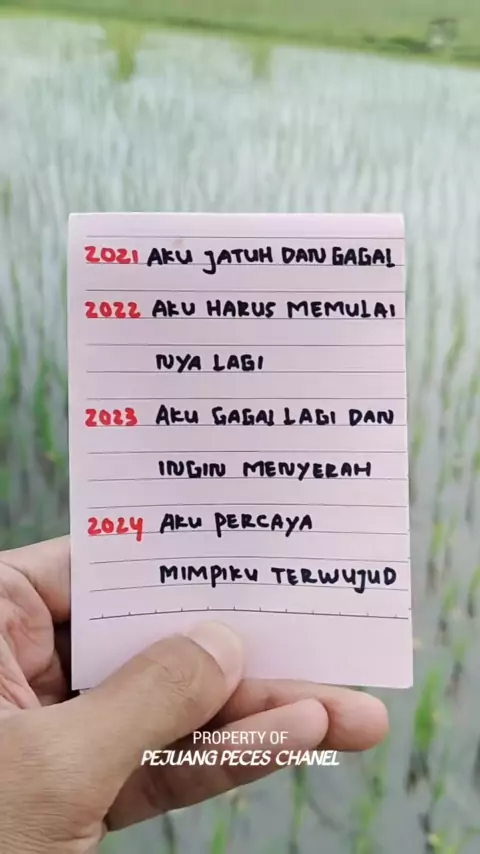 2021 AKU JATUH DAN GAGAL
2022 AKU HARUS MEMULAI
NYA LAGI
2023 AKU GAGAL LAGI DAN
INGIN MENYERAH
2024 AKU PERCAYA
MIMPIKU TERWUJUD
PROPERTY OF
PEJUANG PECES CHANEL